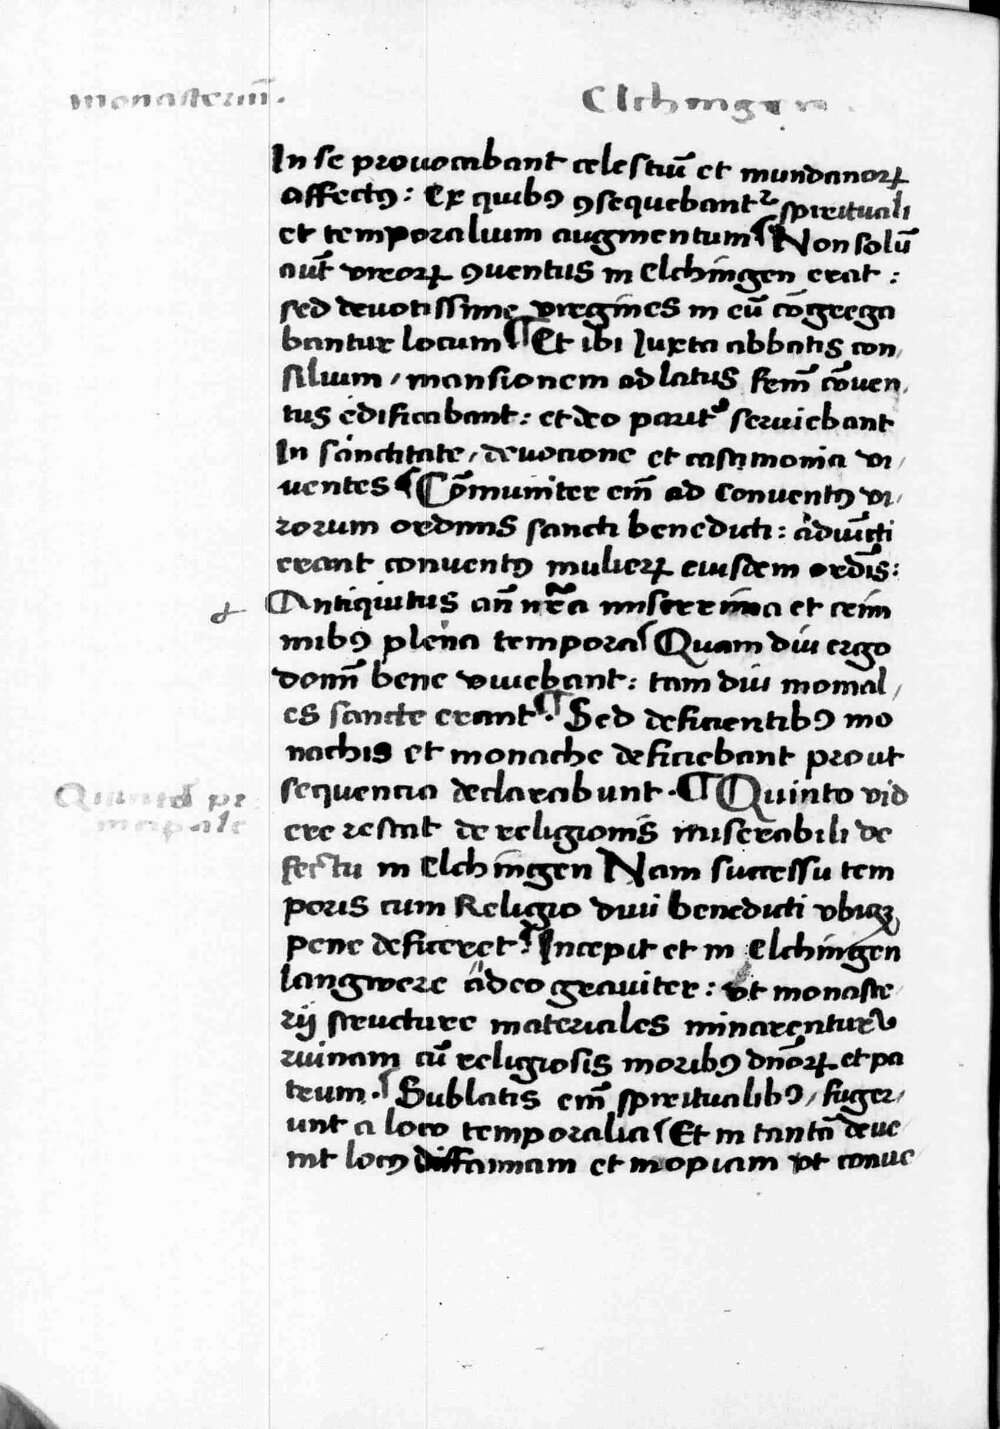 monasteriū. Elchingen.
In se prouocabant celestiū et mundanorꝝ
affectꝰ: Ex quibꝰ ꝯsequebantᷣ spirituali
et temporalium augmentum ¶ Non solū
aūt virorꝝ ꝯuentus in Elchingen erat:
sed deuotissime virgines in eū cōgrega
bantur locum ¶ Et ibi Iuxta abbatis con,
silium, mansionem ad latus fem̄ cōuen,
tus edificabant: et deo paritᷣ seruiebant
In sanctitate, deuocione et castimonia vi,
uentes ¶ Cōmuniter em̄ ad Conuentꝰ vi,
rorum ordinis sancti benedicti: adiūcti
erant conuentꝰ mulierꝝ eiusdem ordīs:
Antiquitus an̄ nr̄a miserrima et crim
inibꝰ plena tempora ¶ Quam diu ergo
domī bene viuebant: tam diu monial,
es sancte erant. ¶ Sed deficientibꝰ mo
nachis et monache deficiebant prout
sequencia declarabunt. ¶ Quinto vid
Quintū pr
incipale
ere restat de religionis miserabili de
fectu in Elchingen Nam successu tem
poris cum Religio diui benedicti vbiqꝫ
pene deficeret ¶ Incepit et in Elchingen
langwere adeo grauiter: vt monaste
rij structure materiales minarentur
ruinam cū religiosis moribꝰ dn̄orꝝ et pa
trum. ¶ Sublatis em̄ spiritualibꝰ, fuger,
unt a loco temporalia ¶ Et in tantā deue
nit locꝰ diffamiam et inopiam vt conue